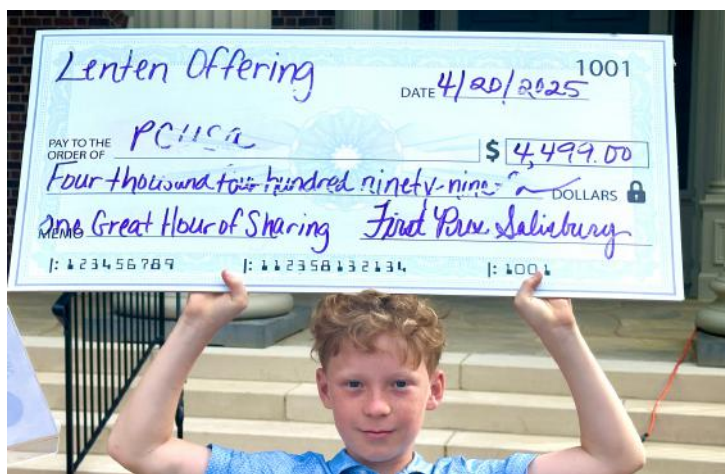 Lenten Offering
1001
DATE 4/20/2025
PAY TO THE
ORDER OF PCUSA
$ 4,499.00
Four thousand four hundred ninety-nine DOLLARS
MEMO One Great Hour of Sharing First Pres. Salisbury
|: 123456789 |: 112358132134 |: 1001